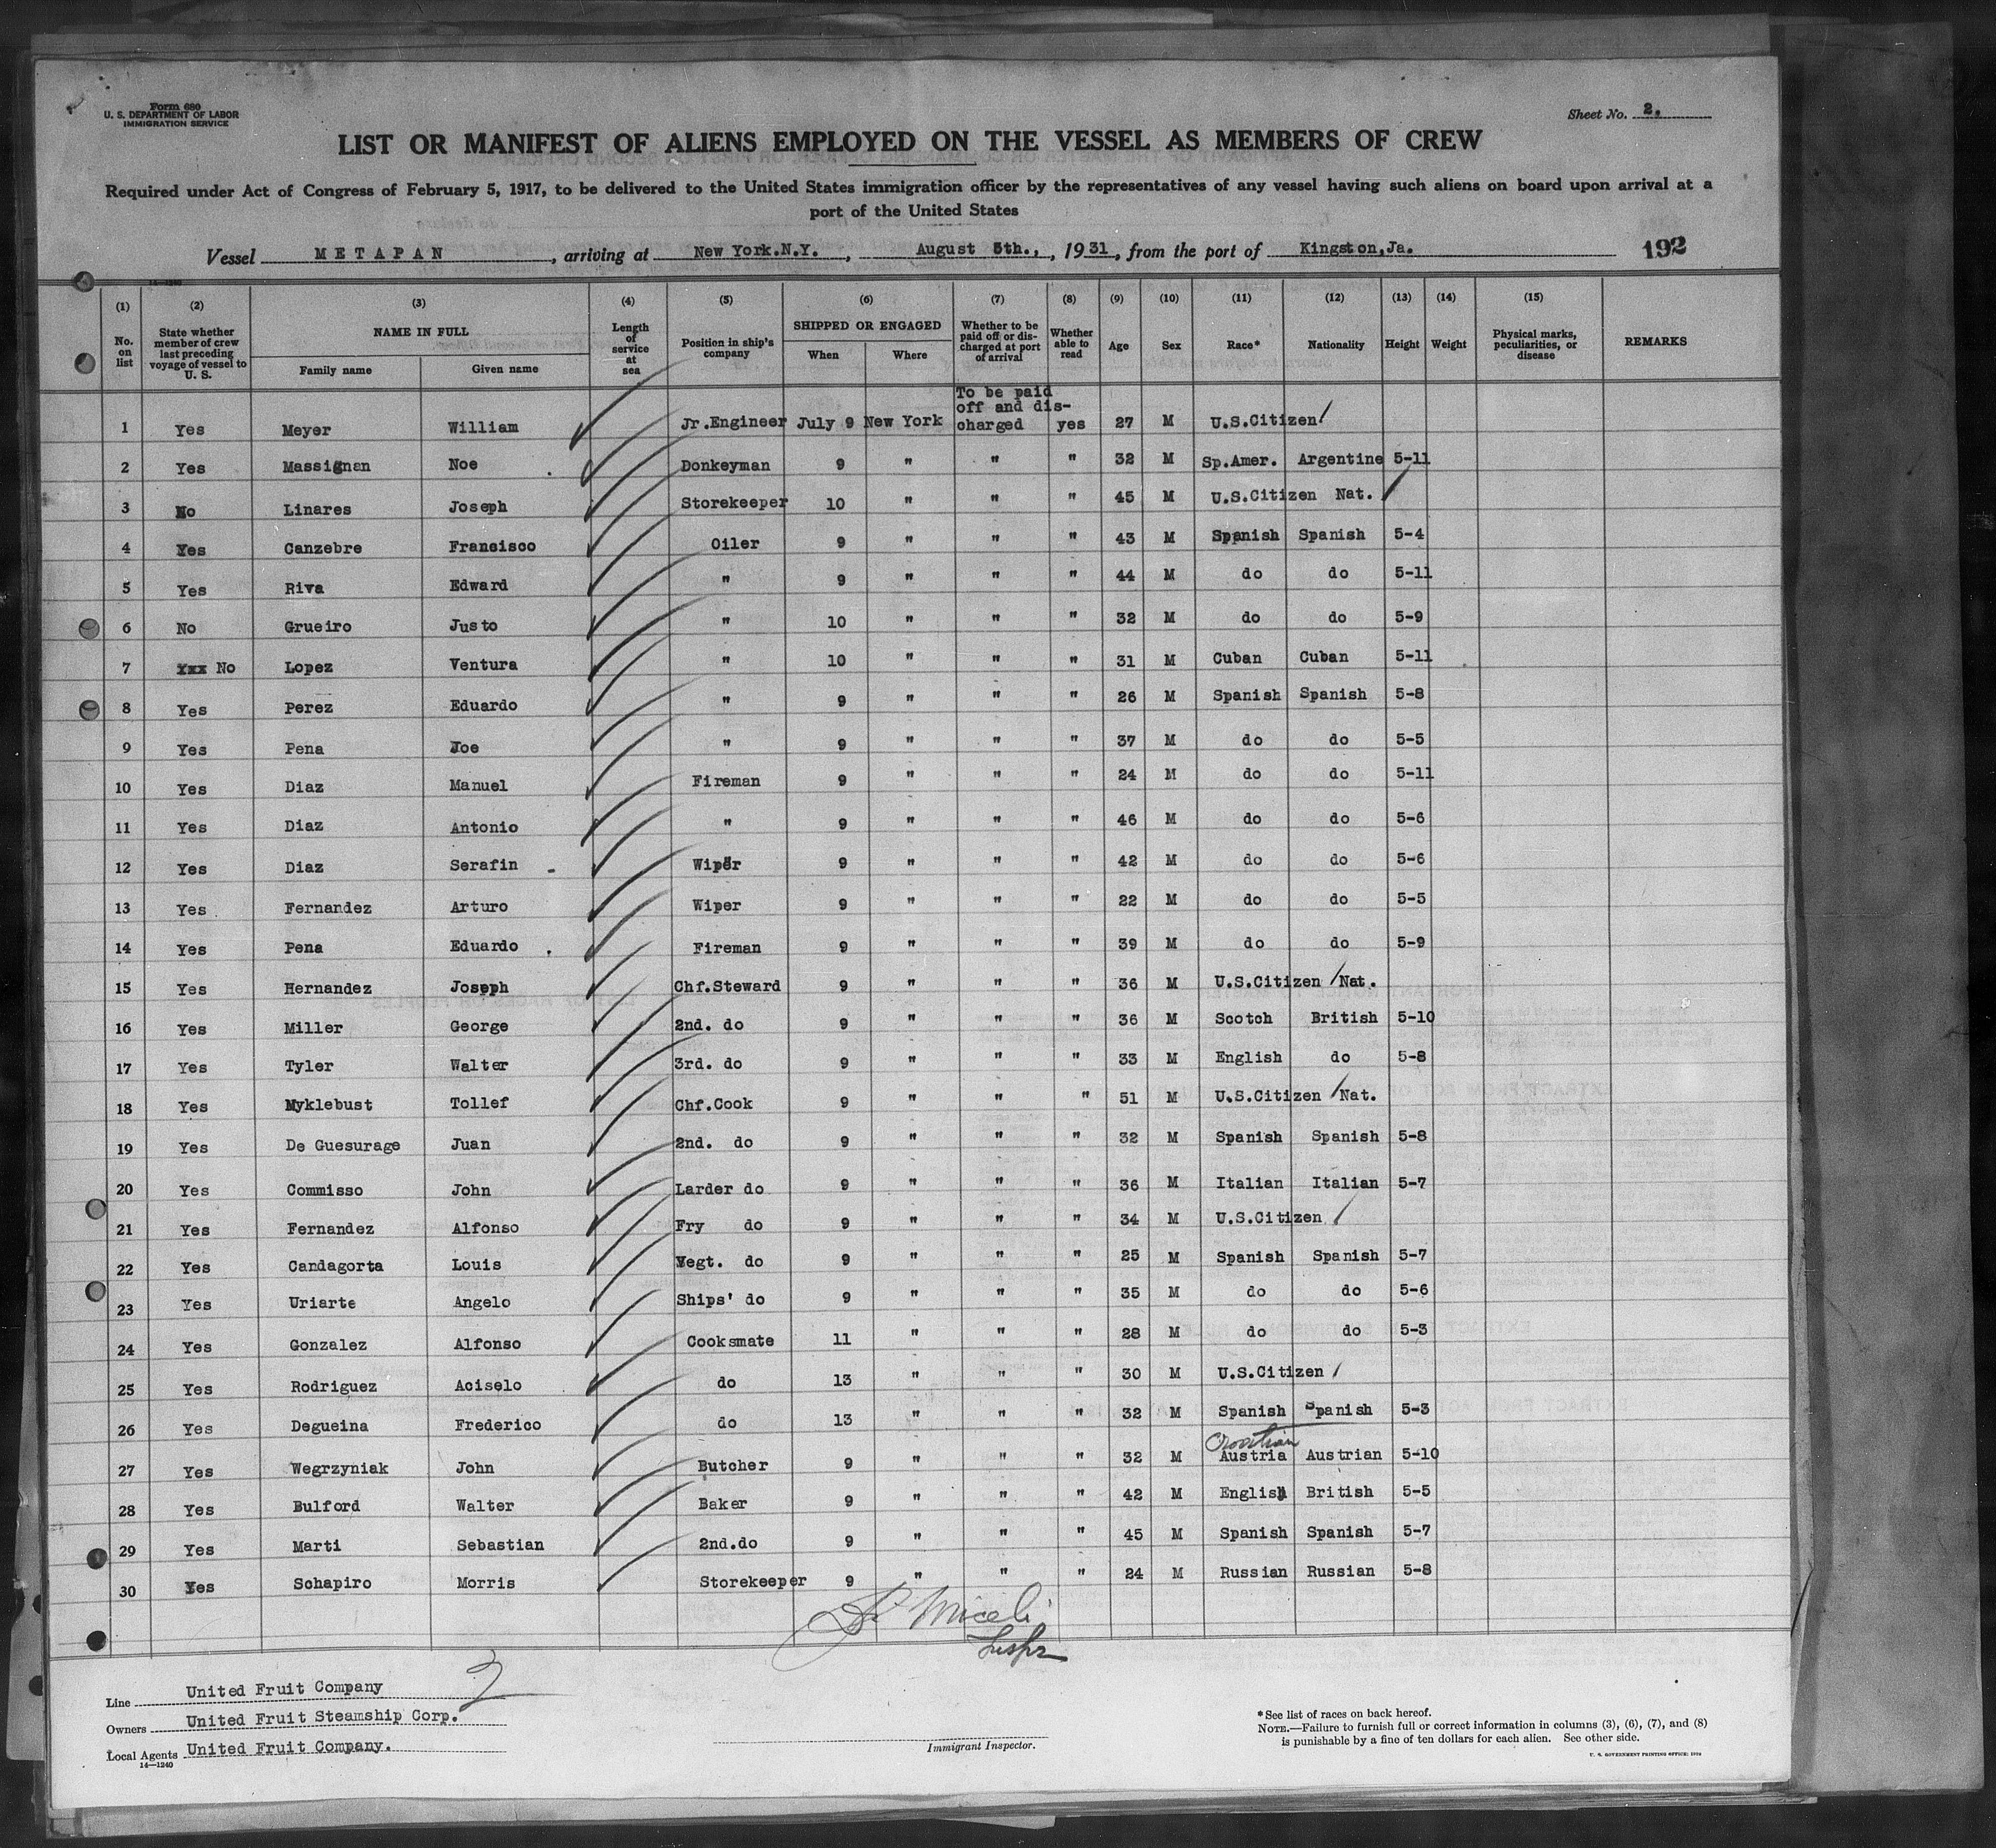 Form 680
U. S. DEPARTMENT OF LABOR
IMMIGRATION SERVICE
Sheet No. 2.
LIST OR MANIFEST OF ALIENS EMPLOYED ON THE VESSEL AS MEMBERS OF CREW
Required under Act of Congress of February 5, 1917, to be delivered to the United States immigration officer by the representatives of any vessel having such aliens on board upon arrival at a
port of the United States
Vessel METAPAN, arriving at New York.N.Y., August 5th., 1931, from the port of Kingston,Ja. 192
14-1240
(1) (2) (3) (4) (5) (6) (7) (8) (9) (10) (11) (12) (13) (14) (15)
No. on list
State whether member of crew last preceding voyage of vessel to U. S.
NAME IN FULL
Family name Given name
Length of service at sea
Position in ship's company
SHIPPED OR ENGAGED
When Where
Whether to be paid off or discharged at port of arrival
Whether able to read
Age Sex Race* Nationality Height Weight
Physical marks, peculiarities, or disease
REMARKS
To be paid
off and dis-
1 Yes Meyer William Jr.Engineer July 9 New York charged yes 27 M U.S.Citizen /
2 Yes Massignan Noe . Donkeyman 9 " " " 32 M Sp.Amer. Argentine 5-11
3 No Linares Joseph Storekeeper 10 " " " 45 M U.S.Citizen Nat. /
4 Yes Canzebre Francisco Oiler 9 " " " 43 M Spanish Spanish 5-4
5 Yes Riva Edward " 9 " " " 44 M do do 5-11
6 No Grueiro Justo " 10 " " " 32 M do do 5-9
7 Yxx No Lopez Ventura " 10 " " " 31 M Cuban Cuban 5-11
8 Yes Perez Eduardo " 9 " " " 26 M Spanish Spanish 5-8
9 Yes Pena Joe " 9 " " " 37 M do do 5-5
10 Yes Diaz Manuel Fireman 9 " " " 24 M do do 5-11
11 Yes Diaz Antonio " 9 " " " 46 M do do 5-6
12 Yes Diaz Serafin - Wiper 9 " " " 42 M do do 5-6
13 Yes Fernandez Arturo Wiper 9 " " " 22 M do do 5-5
14 Yes Pena Eduardo . Fireman 9 " " " 39 M do do 5-9
15 Yes Hernandez Joseph Chf.Steward 9 " " " 36 M U.S.Citizen / Nat.
16 Yes Miller George 2nd. do 9 " " " 36 M Scotch British 5-10
17 Yes Tyler Walter 3rd. do 9 " " " 33 M English do 5-8
18 Yes Myklebust Tollef Chf.Cook 9 " " " 51 M U.S.Citizen / Nat.
19 Yes De Guesurage Juan 2nd. do 9 " " " 32 M Spanish Spanish 5-8
20 Yes Commisso John Larder do 9 " " " 36 M Italian Italian 5-7
21 Yes Fernandez Alfonso Fry do 9 " " " 34 M U.S.Citizen /
22 Yes Candagorta Louis Vegt. do 9 " " " 25 M Spanish Spanish 5-7
23 Yes Uriarte Angelo Ships' do 9 " " " 35 M do do 5-6
24 Yes Gonzalez Alfonso Cooksmate 11 " " " 28 M do do 5-3
25 Yes Rodriguez Aciselo do 13 " " " 30 M U.S.Citizen /
26 Yes Degueina Frederico do 13 " " " 32 M Spanish Spanish 5-3
Croatian
27 Yes Wegrzyniak John Butcher 9 " " " 32 M Austria Austrian 5-10
28 Yes Bulford Walter Baker 9 " " " 42 M English British 5-5
29 Yes Marti Sebastian 2nd.do 9 " " " 45 M Spanish Spanish 5-7
30 Yes Schapiro Morris Storekeeper 9 " " " 24 M Russian Russian 5-8
Miceli
Inspr
3
Line United Fruit Company
Owners United Fruit Steamship Corp.
Local Agents United Fruit Company.
14—1240
Immigrant Inspector.
*See list of races on back hereof.
NOTE.—Failure to furnish full or correct information in columns (3), (6), (7), and (8)
is punishable by a fine of ten dollars for each alien. See other side.
U. S. GOVERNMENT PRINTING OFFICE: